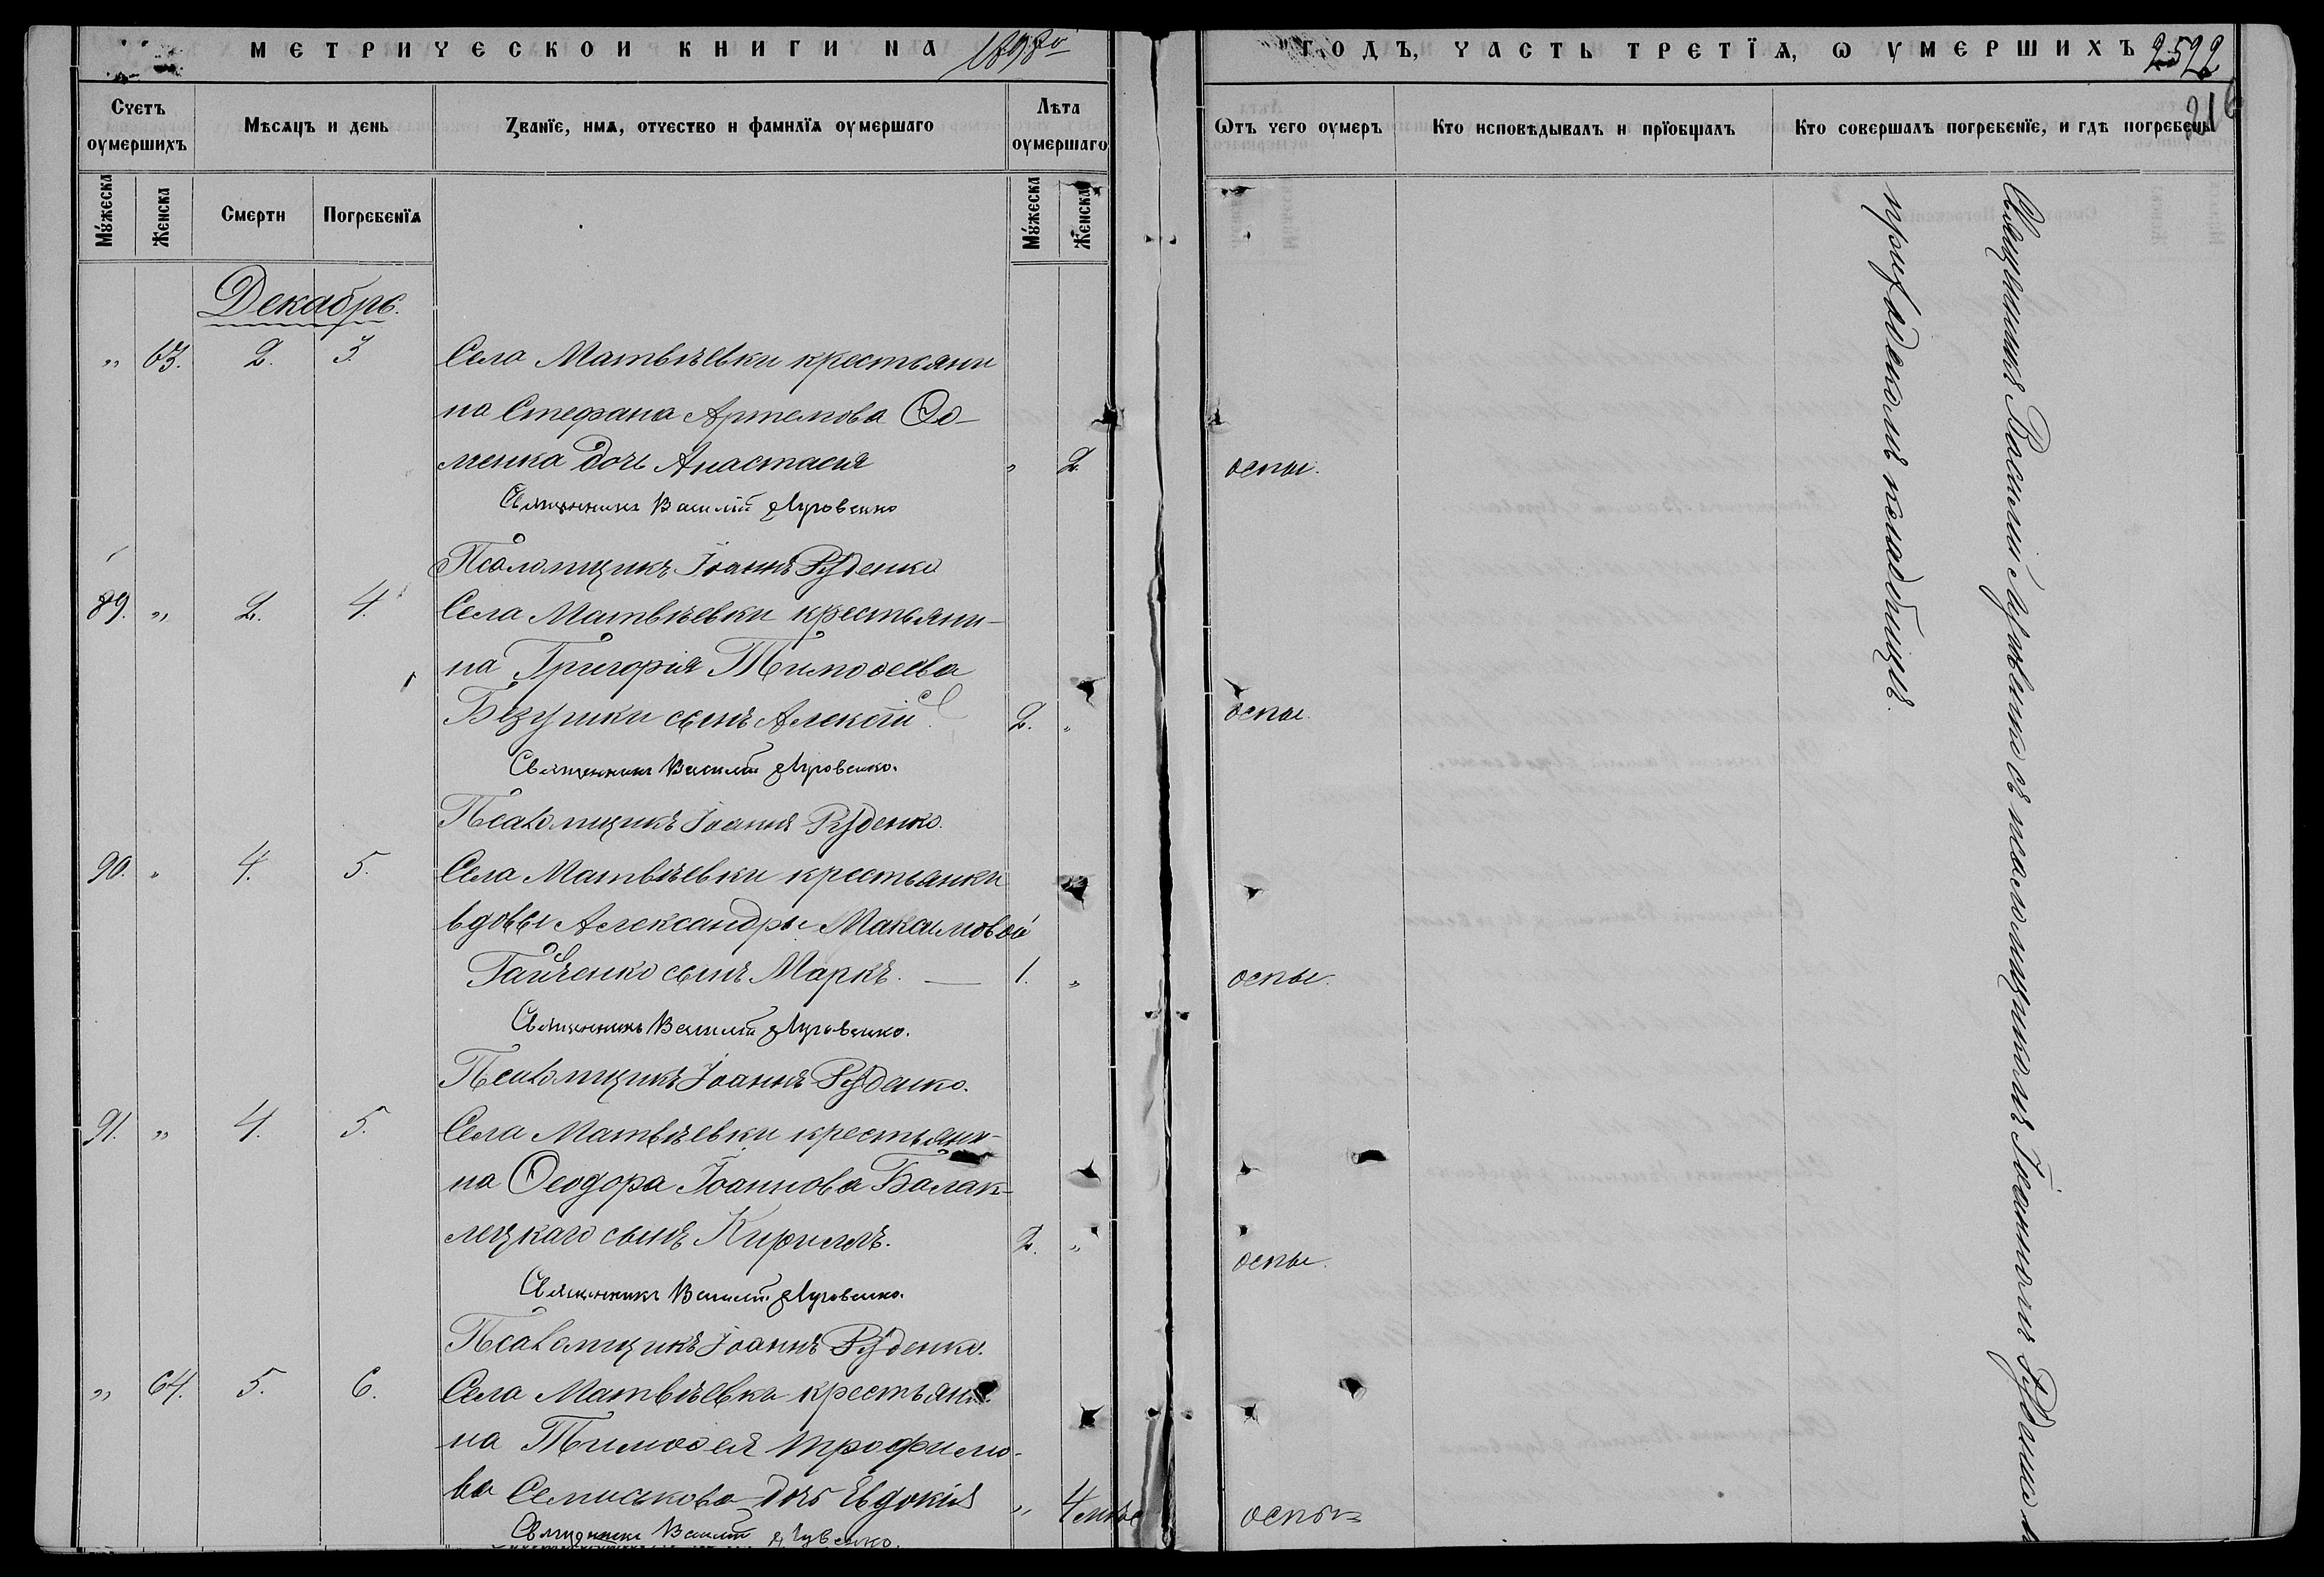 МЕТРИЧЕСКОЙ КНИГИ НА 1898й ГОДЪ, ЧАСТЬ ТРЕТЇѦ, Ѡ УМЕРШИХЪ
2522
216
Счетъ оумершихъ
Мѣсѧцъ и день
Званїе, имѧ, отчество и фамилїѧ оумершаго
Лѣта оумершаго
Ѿтъ чего оумеръ
Кто исповѣдывалъ и прїобщалъ
Кто совершалъ погребенїе, и гдѣ погребены
Мужеска
Женска
Смерти
Погребенїѧ
Мужеска
Женска
Декабрь.
" 63. 2. 3. Села Матвѣевки крестьяни
на Стефана Артемова Ѳо-
менка дочь Анастасія " 2 оспы.
Священникъ Василій Луговенко
Псаломщикъ Іоаннъ Руденко
89. " 2. 4. Села Матвѣевки крестьяни-
на Григорія Тимоѳеева
сынъ Алексій 2. " оспы.
Священникъ Василій Луговенко.
Псаломщикъ Іоаннъ Руденко.
90. " 4. 5. Села Матвѣевки крестьянки
вдовы Александры Максимовой
Гайченко сынъ Маркъ. — 1. " оспы.
Священникъ Василій Луговенко.
Псаломщикъ Іоаннъ Руденко.
91. " 4. 5. Села Матвѣевки крестьяни-
на Ѳеодора Іоаннова Балак-
лецкаго сынъ Кириллъ. 2. " оспы.
Священникъ Василій Луговенко.
Псаломщикъ Іоаннъ Руденко.
" 64. 5. 6. Села Матвѣевки крестьяни
на Тимоѳея Трофимо-
ва Семиськова дочь Евдокія " 4 мѣс оспы
Священникъ Василій Луговенко.
Священникъ Василій Луговенко съ псаломщикомъ Іоанномъ Руденко
приходскомъ кладбищѣ.